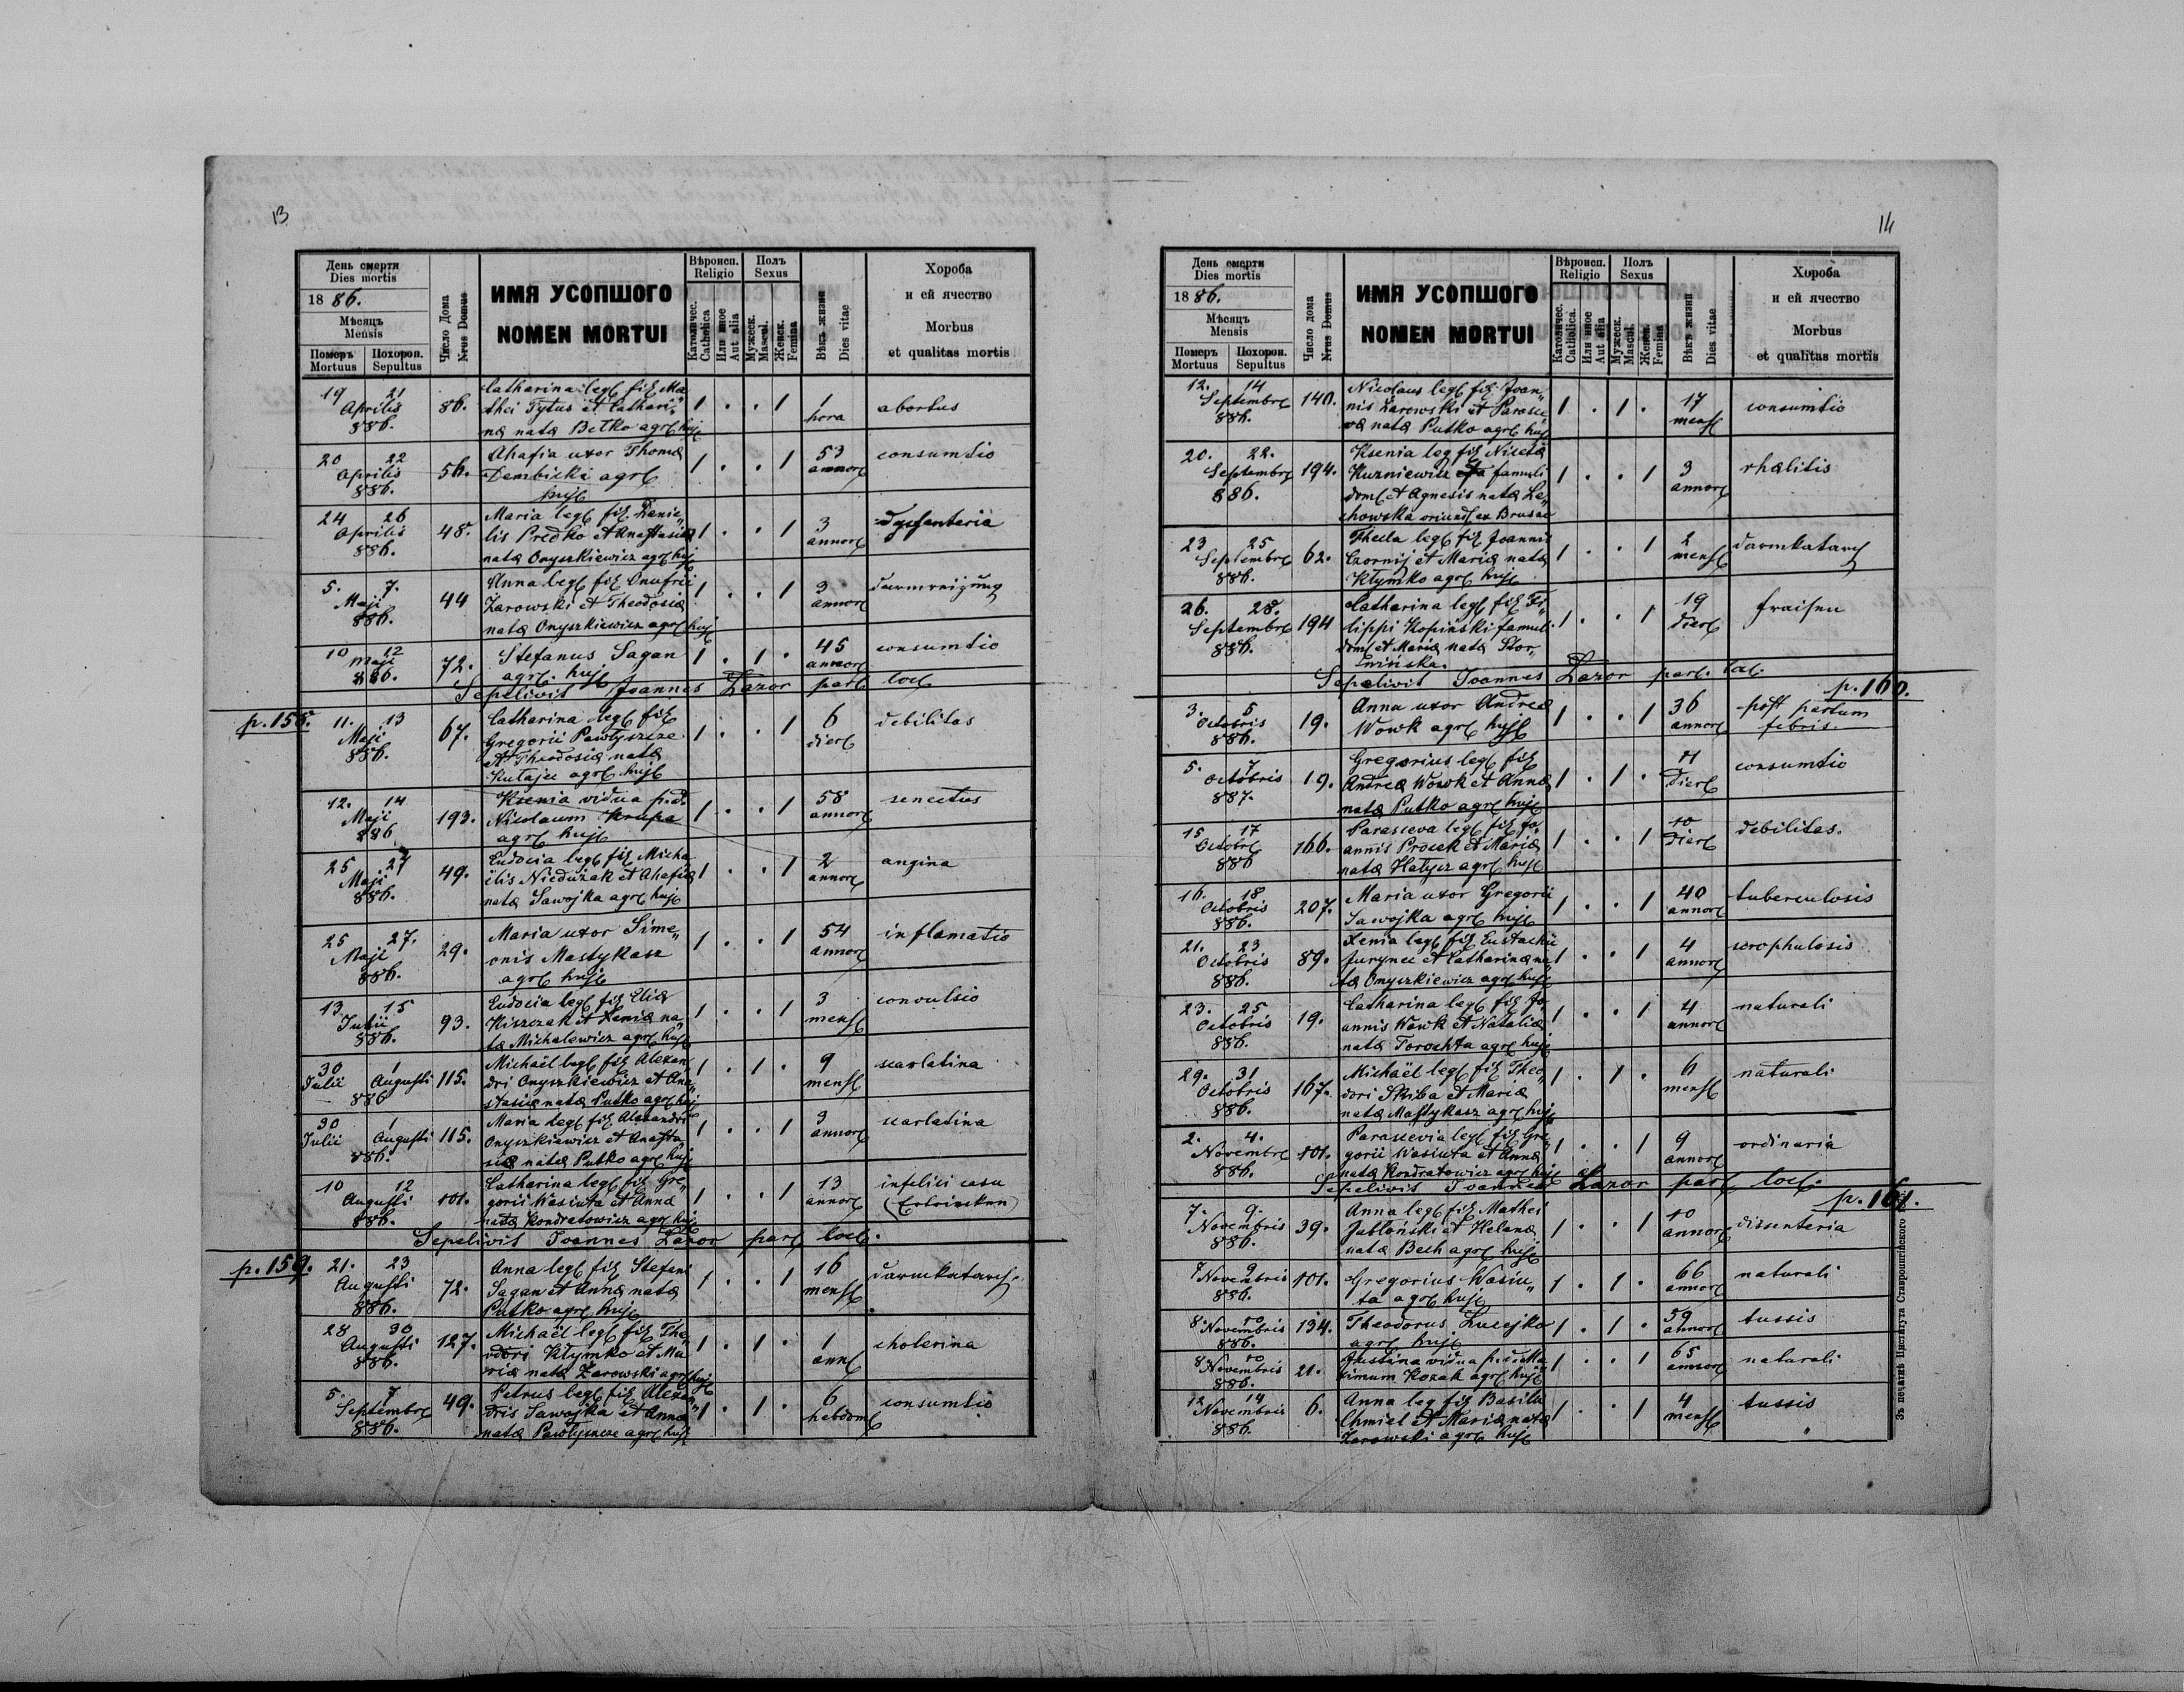 13
День смерти
Dies mortis
1886.
Мѣсяць
Mensis
Померъ Похорон.
Mortuus Sepultus
Число Дома
Nrus Domus
ИМЯ УСОПШОГО
NOMEN MORTUI
Вѣроисп.
Religio
Католичес.
Catholica
Или иное
Aut alia
Полъ
Sexus
Мужеск.
Mascul.
Женск.
Femina
Вѣкъ жизни
Dies vitae
Хороба
и ей ячество
Morbus
et qualitas mortis
19 21 Catharina leg fil Ma„
Aprilis 86. thei Tytus et Cathari„ 1 . . 1 1 abortus
886. næ natæ Betko agr huj hora
20 22 Ahafia uxor Thomæ 53 consumtio
Aprilis 56. Dembicki agr 1 . . 1 annor
886. huj
24 26 Maria leg fil Danie„
Aprilis 48. lis Predko et Anastasiæ 1 . . 1 3 dysenteria
886. natæ Onyszkiewicz agr huj annor
5. 7. Anna leg fil Onufrii 3
Maji 44 Żarowski et Theodosiæ 1 . . 1 annor
886. natæ Onyszkiewicz agr huj
10 12 Stefanus Sagan 1 . 1 . 45 consumtio
Maji 72. agr. huj annor
886.
Sepelivit Joannes Lazor par loc
p. 158. 11. 13 Catharina leg fil 6 debilitas
Maji 67. Gregorii Pawłyszcze 1 . . 1 dier
886. et Theodosiæ natæ
Kutajce agr huj
12. 14 Ksenia vidua p. d. 58 senectus
Maji 193. Nicolaum Krupa 1 . . 1 annor
886 agr huj
25 27 Eudocia leg fil Micha
Maji 49. ëlis Niedużak et Ahafiæ 1 . . 1 2 angina
886. natæ Sawojka agr huj annor
25 27. Maria uxor Sime„ 54 inflamatio
Maji 29. onis Mastykasz 1 . . 1 annor
886. agr huj
13. 15 Eudocia leg fil Eliæ 3 convulsio
Julii 93. Kiszczak et Xeniæ na„ 1 . . 1 mens
886. tæ Michalewicz agr huj
30 1 Michaël leg fil Alexan 9 scarlatina
Julii Augusti 115. dri Onyszkiewicz et Ana„ 1 . 1 . mens
886 stasiæ natæ Putko agr huj
30 1 Maria leg fil Alexandri 3 scarlatina
Julii Augusti 115. Onyszkiewicz et Anasta 1 . . 1 annor
886. siæ natæ Putko agr huj
10 12 Catharina leg fil Gre„ 13 infelici casu
Augusti 101. gorii Wasiuta et Annæ 1 . . 1 annor
886. natæ Kondratowicz agr huj
Sepelivit Joannes Lazor par loc.
p. 159. 21. 23 Anna leg fil Stefani 16 darmkatarh
Augusti 72. Sagan et Annæ natæ 1 . . 1 mens
886. Putko agr huj
28 30 Michaël leg fil The„
Augusti 127. odori Kłymko et Ma 1 . 1 . 1 cholerina
886. riæ natæ Żarowski agr huj ann
5 7 Petrus leg fil Alexan„ 6 consumtio
Septembr 49. dris Sawojka et Annæ 1 . 1 . hebdom
886. natæ Pawłyszcze agr huj
14
День смерти
Dies mortis
1886.
Мѣсяць
Mensis
Померъ Похорон.
Mortuus Sepultus
Число дома
Nrus Domus
ИМЯ УСОПШОГО
NOMEN MORTUI
Вѣроисп.
Religio
Католичес.
Catholica.
Или иное
Aut alia
Полъ
Sexus
Мужеск.
Mascul.
Женск.
Femina
Вѣкъ жизни
Dies vitae
Хороба
и ей ячество
Morbus
et qualitas mortis
12. 14 Nicolaus leg fil Joan„
Septembr 140. nis Żarowski et Parasce 1 . 1 . 17 consumtio
886. væ natæ Putko agr huj mens
20. 22. Ksenia leg fil Nicetæ
Septembr 194. Kuzniewicz famuli 1 . . 1 3 rhalitis
886. dom et Agnesis natæ Le„ annor
chowska oriund ex Brusne
23 25 Thecla leg fil Joannis 2 darmkatarh
Septembr 62. Czornij et Mariæ natæ 1 . . 1 mens
886. Kłymko agr huj
26. 28. Catharina leg fil Fi„ 19 fraisen
Septembr 194 lippi Kopiński famuli 1 . . 1 dier
886. dom et Mariæ natæ Stor„
Sepelivit Joannes Lazor par. loc.
p. 160.
3. 5 Anna uxor Andreæ 36 post partum
Octobris 19. Wowk agr huj 1 . . 1 annor febris.
886.
5. 7 Gregorius leg fil consumtio
Octobris 19. Andreæ Wowk et Annæ 1 . 1 . dier
887. natæ Putko agr huj
15 17 Parasceva leg fil Jo„ 10 debilitas.
Octobr 166. annis Prociek et Mariæ 1 . . 1 dier
886 natæ Hałycz agr huj
16. 18 Maria uxor Gregorii 40 tuberculosis
Octobris 207. Sawojka agr huj 1 . . 1 annor
886.
21. 23 Xenia leg fil Eustachii 4 scrophulosis
Octobris 89. Jurynec et Catharinæ na„ 1 . . 1 annor
886. tæ Onyszkiewicz agr huj
23. 25 Catharina leg fil Jo„ 4 naturali
Octobris 19. annis Wowk et Nataliæ 1 . . 1 annor
886. natæ Torochta agr huj
29. 31 Michaël leg fil Theo„ 6 naturali
Octobris 167. dori Skiba et Mariæ 1 . 1 . mens
886. natæ Mastykasz agr huj
2. 4. Parascevia leg fil Gre„ 9 ordinaria
Novembr 101. gorii Wasiuta et Annæ 1 . . 1 annor
886. natæ Kondratowicz agr huj
Sepelivit Joannes Lazor par loc.
p. 161.
7. 9. Anna leg fil Mathei 10 dissenteria
Novembris 39. Jabłoński et Helenæ 1 . . 1 annor
886. natæ Bech agr huj
7 9 Gregorius Wasiu„ 66 naturali
Novembris 101. ta agr huj 1 . 1 . annor
886.
8 10 Theodorus Łucejko 59 tussis
Novembris 194. agr huj 1 . 1 . annor
886.
8 10 Justina vidua p. d. Ma 65 naturali
Novembris 21. ximum Kozak agr huj 1 . . 1 annor
886.
12 14 Anna leg fil Basilii 4 tussis
Novembris 6. Chmiel et Mariæ natæ 1 . . 1 mens
886. Żarowski agr huj
Зъ печатнѣ Института Ставропигійского